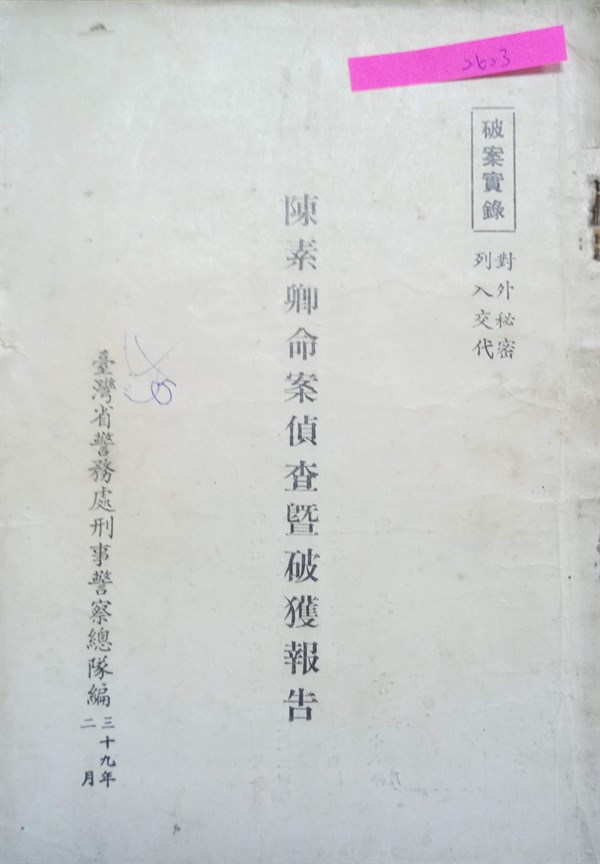 2623
破案實錄
對外秘密
列入交代
陳素卿命案偵查暨破獲報告
臺灣省警務處刑事警察總隊編
三十九年
二月